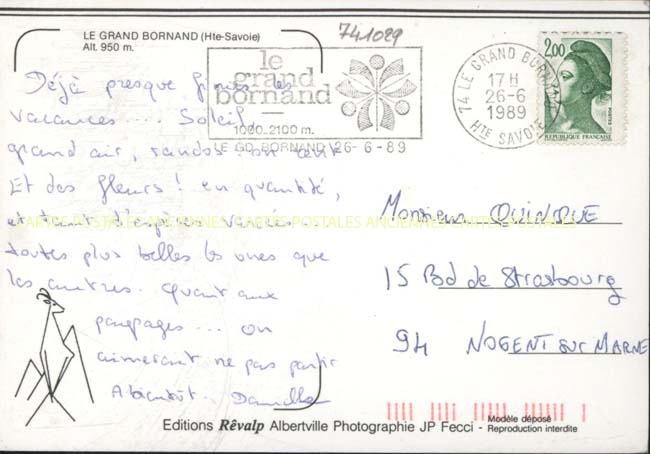 LE GRAND BORNAND (Hte-Savoie)
Alt. 950 m.
741029
le
grand
bornand
1000-2100 m.
LE GD BORNAND 26-6-89
74 LE GRAND BORNAND
17 H
26-6
1989
HTE SAVOIE
2,00
POSTES
REPUBLIQUE FRANÇAISE
Déjà presque finies les
vacances .... Soleil,
grand air, randos : on
Et des fleurs ! en quantité,
et tant d'espèces variées
toutes plus belles les unes que
les autres. Quant aux
paysages ... on
aimerait ne pas partir
A bientôt. Danielle
CARTES POSTALES ANCIENNES CARTES POSTALES ANCIENNES CARTES POSTALES
Monsieur QUINQUE
15 Bd de Strasbourg
94 NOGENT SUR MARNE
Editions Rêvalp Albertville Photographie JP Fecci - Modèle déposé
Reproduction interdite